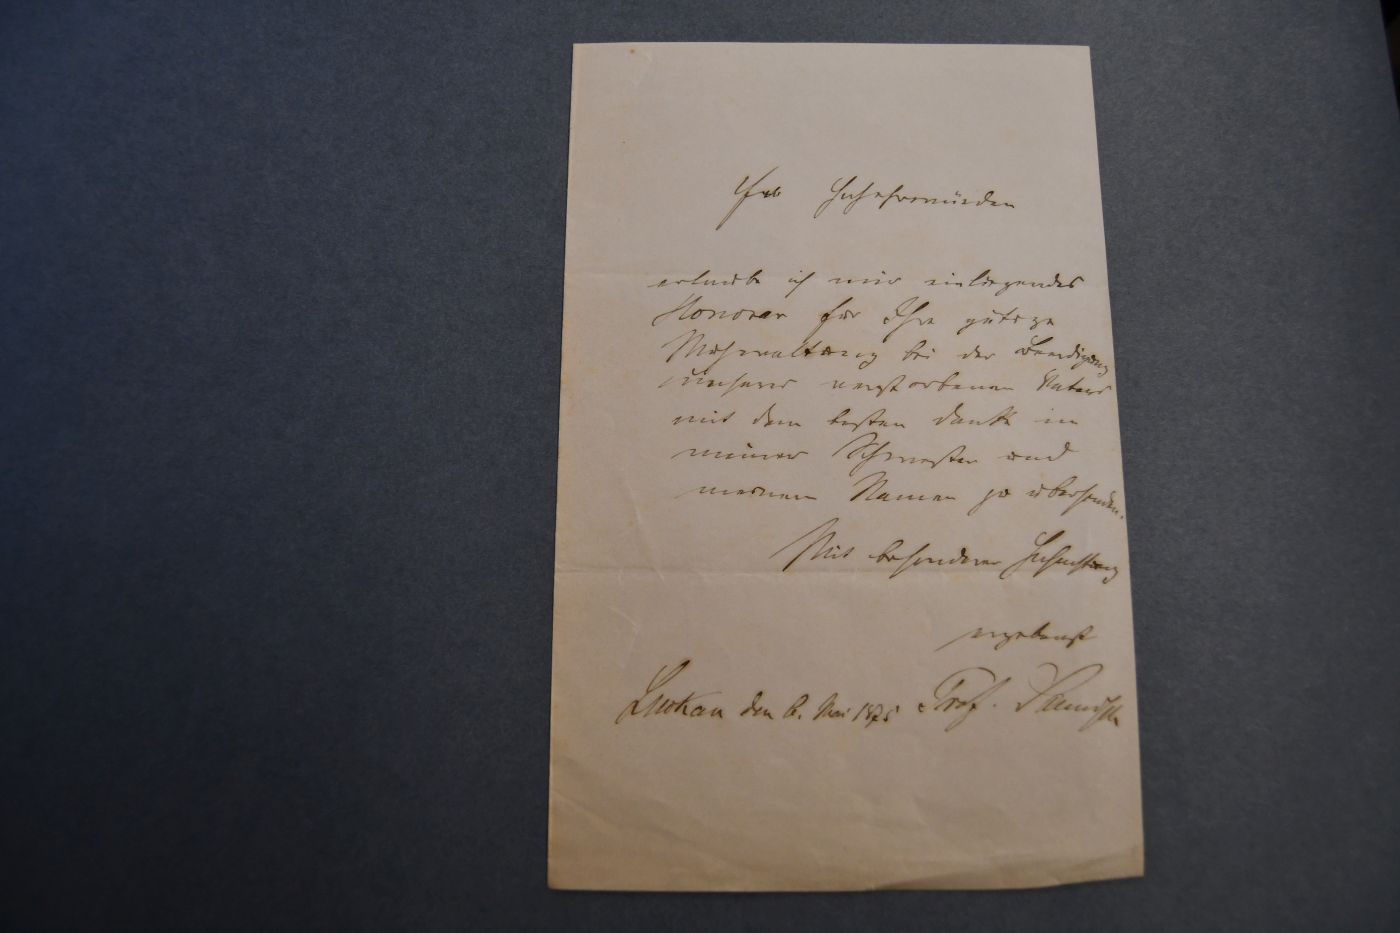 Ew Hochehrwürden
erlaube ich mir einliegendes
Honorar für Ihre gütige
Mühwaltung bei der Beerdigung
unseres verstorbenen Vaters
mit dem besten Dank in
meiner Schwester und
meinem Namen zu übersenden.
Mit besonderer Hochachtung
ergebenst
Luckau den 6. Mai 1875 Prof.